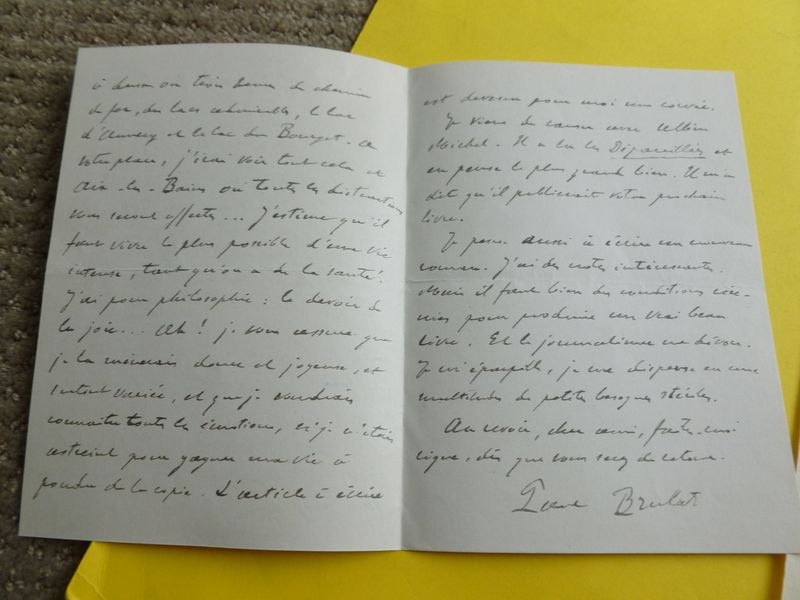 à deux ou trois heures de chemin
de fer, des lacs admirables, le lac
d'Annecy et le lac du Bourget. A
votre place, j'irai voir tout cela et
Aix-les-Bains où toutes les distractions
vous seront offertes... J'estime qu'il
faut vivre le plus possible d'une vie
intense, tant qu'on a de la santé!
J'ai pour philosophie : le devoir de
la joie... Ah! je vous assure que
je la mènerais douce et joyeuse, et
surtout variée, et que je voudrais
connaître toutes les émotions, si je n'étais
astreint pour gagner ma vie à
pondre de la copie. L'article à écrire
est devenu pour moi une corvée.
Je viens de causer avec Albin
Michel. Il a lu les Dépareillés et
en pense le plus grand bien. Il m'a
dit qu'il publierait votre prochain
livre.
Je pense aussi à écrire un nouveau
roman. J'ai des notes intéressantes.
Mais il faut bien des conditions
pour produire un vrai beau
livre. Et le journalisme me dévore.
Je m'éparpille, je me disperse en une
multitude de petites besognes stériles.
Au revoir, cher ami, faites-moi
signe, dès que vous serez de retour.
Paul Brulat